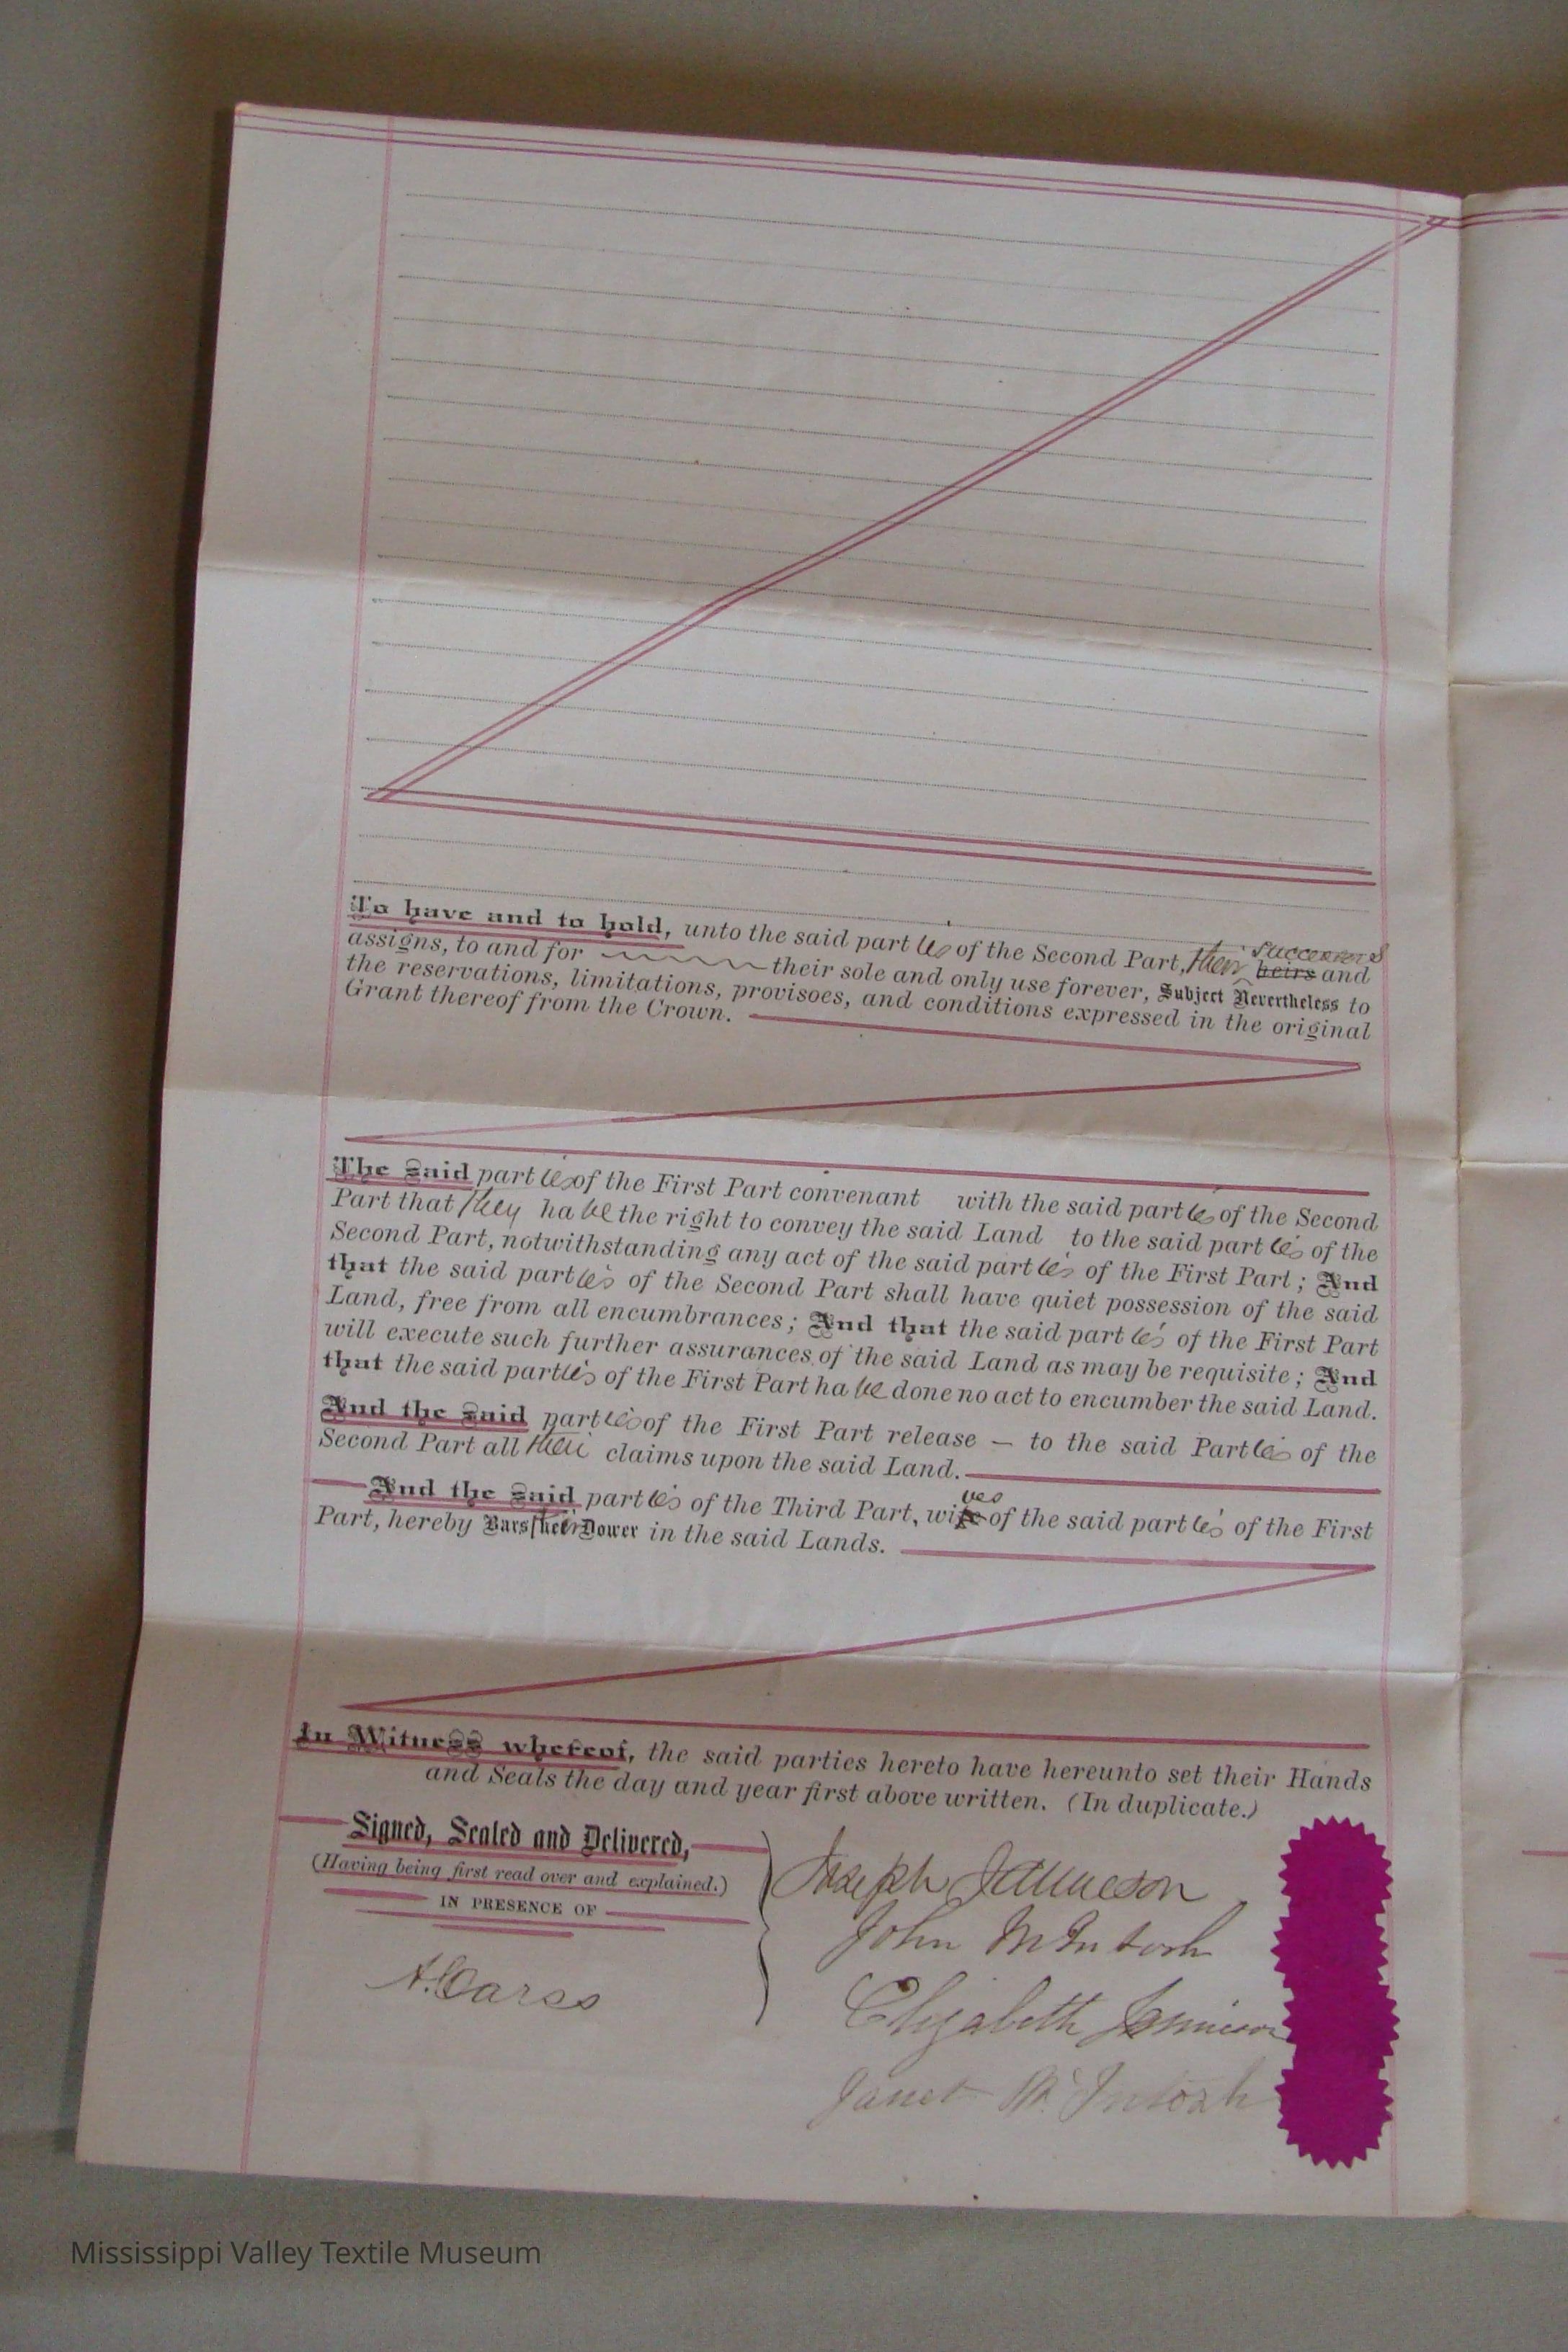 To have and to hold, unto the said parties of the Second Part, their successors heirs and
assigns, to and for their sole and only use forever, Subject Nevertheless to
the reservations, limitations, provisoes, and conditions expressed in the original
Grant thereof from the Crown.
The said parties of the First Part convenant with the said parties of the Second
Part that they have the right to convey the said Land to the said parties of the
Second Part, notwithstanding any act of the said parties of the First Part; And
that the said parties of the Second Part shall have quiet possession of the said
Land, free from all encumbrances; And that the said parties of the First Part
will execute such further assurances of the said Land as may be requisite; And
that the said parties of the First Part have done no act to encumber the said Land.
And the said parties of the First Part release — to the said Parties of the
Second Part all their claims upon the said Land.
And the said parties of the Third Part, wives of the said parties of the First
Part, hereby Bars their Dower in the said Lands.
In Witness whereof, the said parties hereto have hereunto set their Hands
and Seals the day and year first above written. (In duplicate.)
Signed, Sealed and Delivered,
(Having being first read over and explained.)
IN PRESENCE OF
A. Carss
Joseph Jamieson
John McIntosh
Elizabeth Jamieson
Janet McIntosh
Mississippi Valley Textile Museum